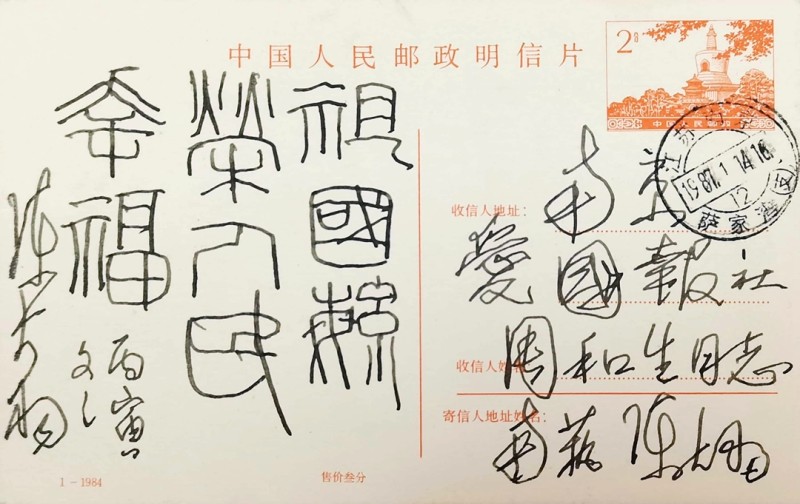 中国人民邮政明信片
2分
中国人民邮政
祖國繁
榮人民
幸福
丙寅
陈大羽
江苏南京
1987.1.14.16
12
萨家湾
收信人地址:
南京
愛國報社
收信人姓名:
周和生同志
寄信人地址姓名:
南藝 陈大羽
1-1984
售价叁分